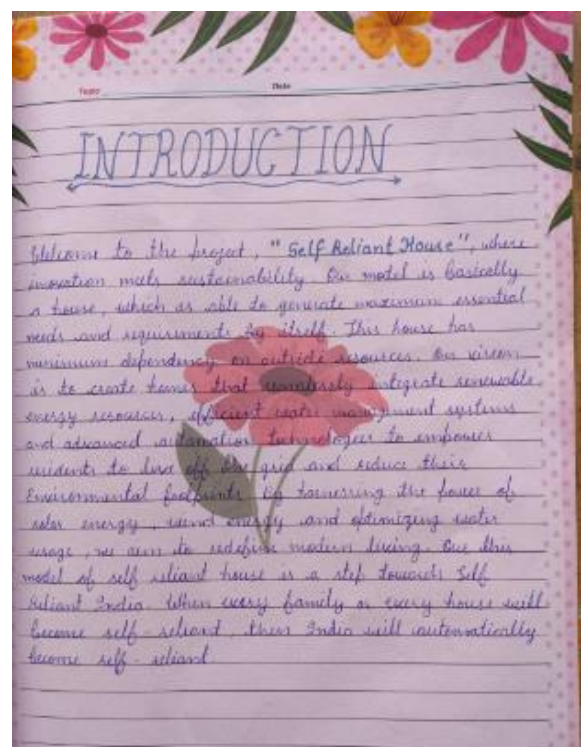 Topic
Date
INTRODUCTION
Welcome to the project, "Self Reliant House", where
inovation meets sustainability. Our model is basically
a house, which is able to generate maximum essential
needs and requirements by itself. This house has
minimum dependency on outside resources. Our vision
is to create homes that seamlessly integrate renewable
energy resources, efficient water management systems
and advanced automation technologies to empower
residents to live off the grid and reduce their
Environmental footprints. By harnessing the power of
solar energy, wind energy and optimizing water
usage, we aim to redefine modern living. Our this
model of self reliant house is a step towards Self
Reliant India. When every family or every house will
become self-reliant, then India will automatically
become self-reliant